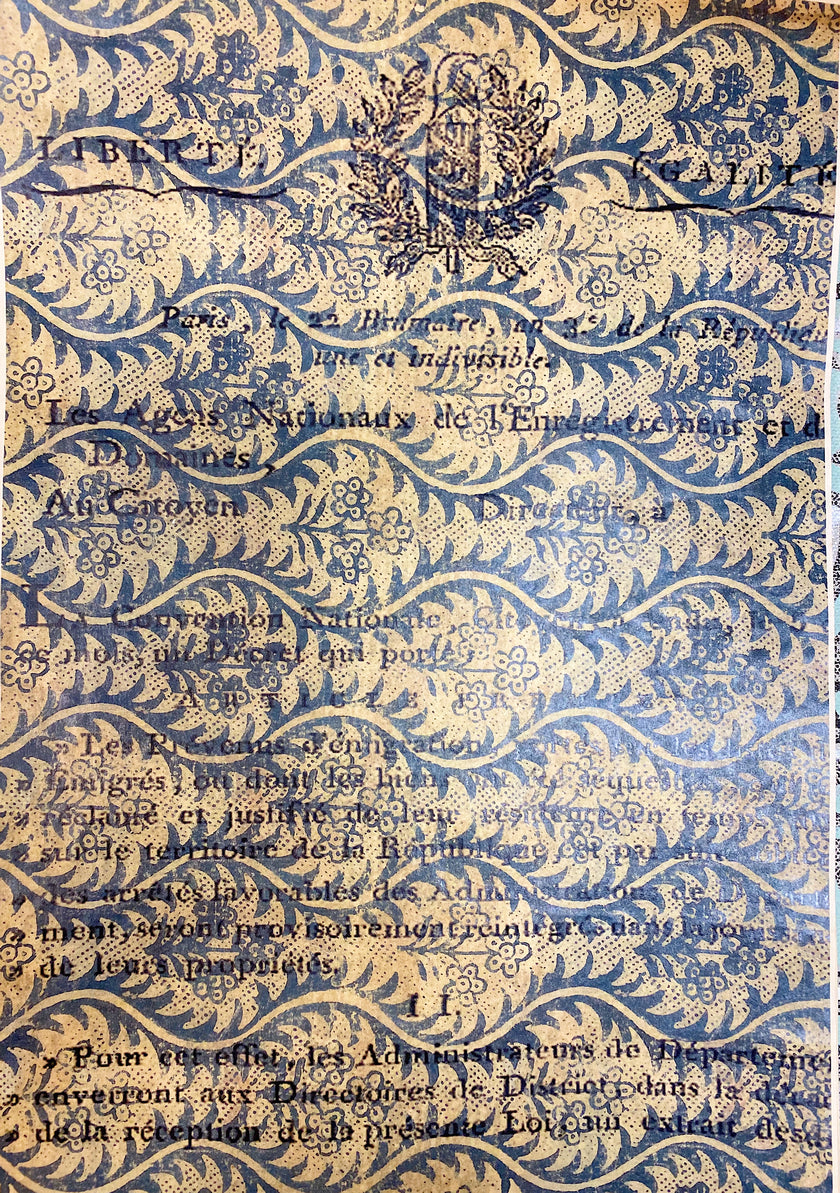 LIBERTÉ.
ÉGALITÉ
Paris, le 22 Brumaire, an 3.e de la Républiqu
une et indivisible.
Les Agens Nationaux de l'Enregistrement et d
Domaines,
Au Citoyen Directeur, à
LA Convention Nationale, Citoyen, a rendu, le
mois, un Décret qui porte:
ARTICLE PREMIER
» Les Prévenus d'émigration,
» d'émigrés, ou dont les biens ont été séquest
» réclamé et justifié de leur résidence en temps
» sur le territoire de la République, et par
» les arrêtés favorables des Administrations de Départe
» ment, seront provisoirement réintégrés dans la jouissan
» de leurs propriétés.
II.
» Pour cet effet, les Administrateurs de Départeme
» enverront aux Directoires de District, dans la
» de la réception de la présente Loi, un extrait des